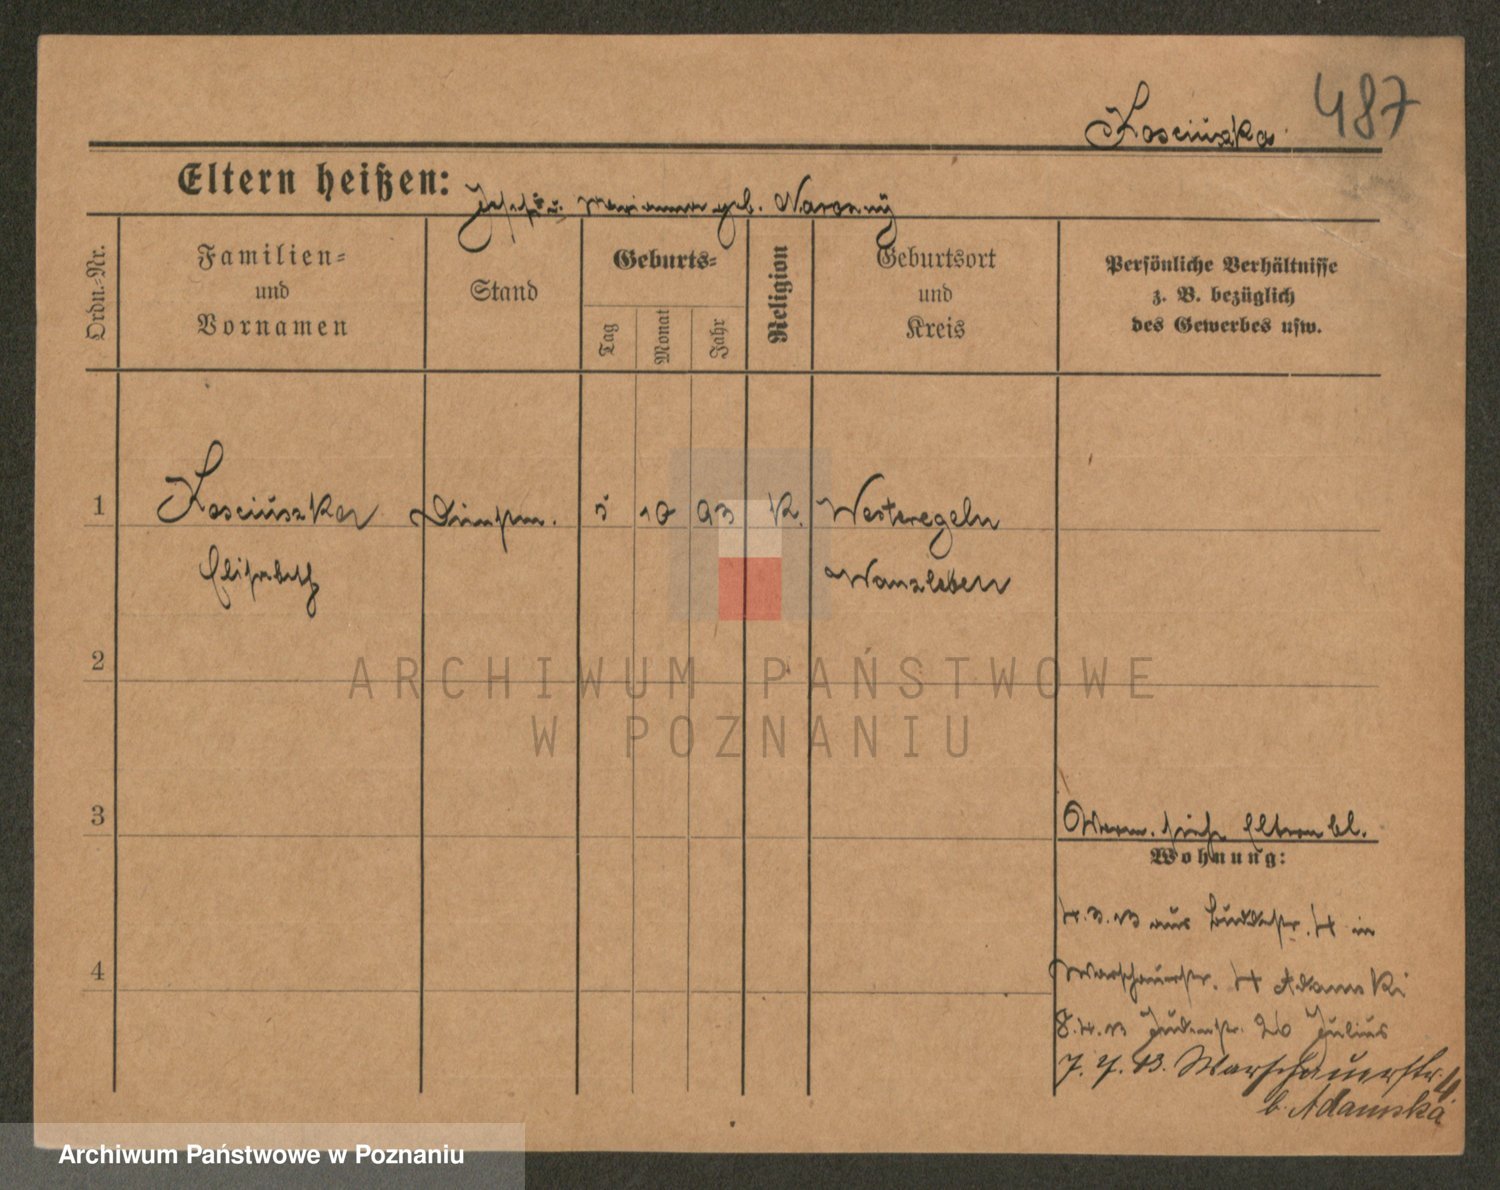 487
Kosciuszka
Eltern heißen: Joseph u. Marianna geb. Nawrony
Ordn.-Nr.
Familien-
und
Vornamen
Stand
Geburts-
Tag
Monat
Jahr
Religion
Geburtsort
und
Kreis
Persönliche Verhältnisse
z. B. bezüglich
des Gewerbes usw.
1 Kosciuszka Dienstm. 5 10 93 K. Westeregeln
Elisabeth Wanzleben
2
3
siehe Eltern bl.
Wohnung:
4. 3. 13 aus 4 in
4
Warschauerstr. 4 Adamski
8. 4. 13 Judenstr. 26 Julius
7. 7. 13. Warschauerstr. 4
b. Adamska
ARCHIWUM PAŃSTWOWE
W POZNANIU
Archiwum Państwowe w Poznaniu